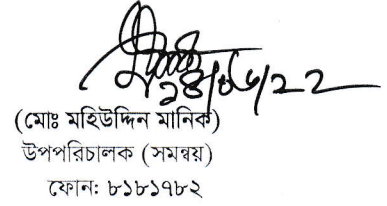 ২৪/০৬/২২
(মোঃ মহিউদ্দিন মানিক)
উপপরিচালক (সমন্বয়)
ফোন: ৮১৮১৭৮২